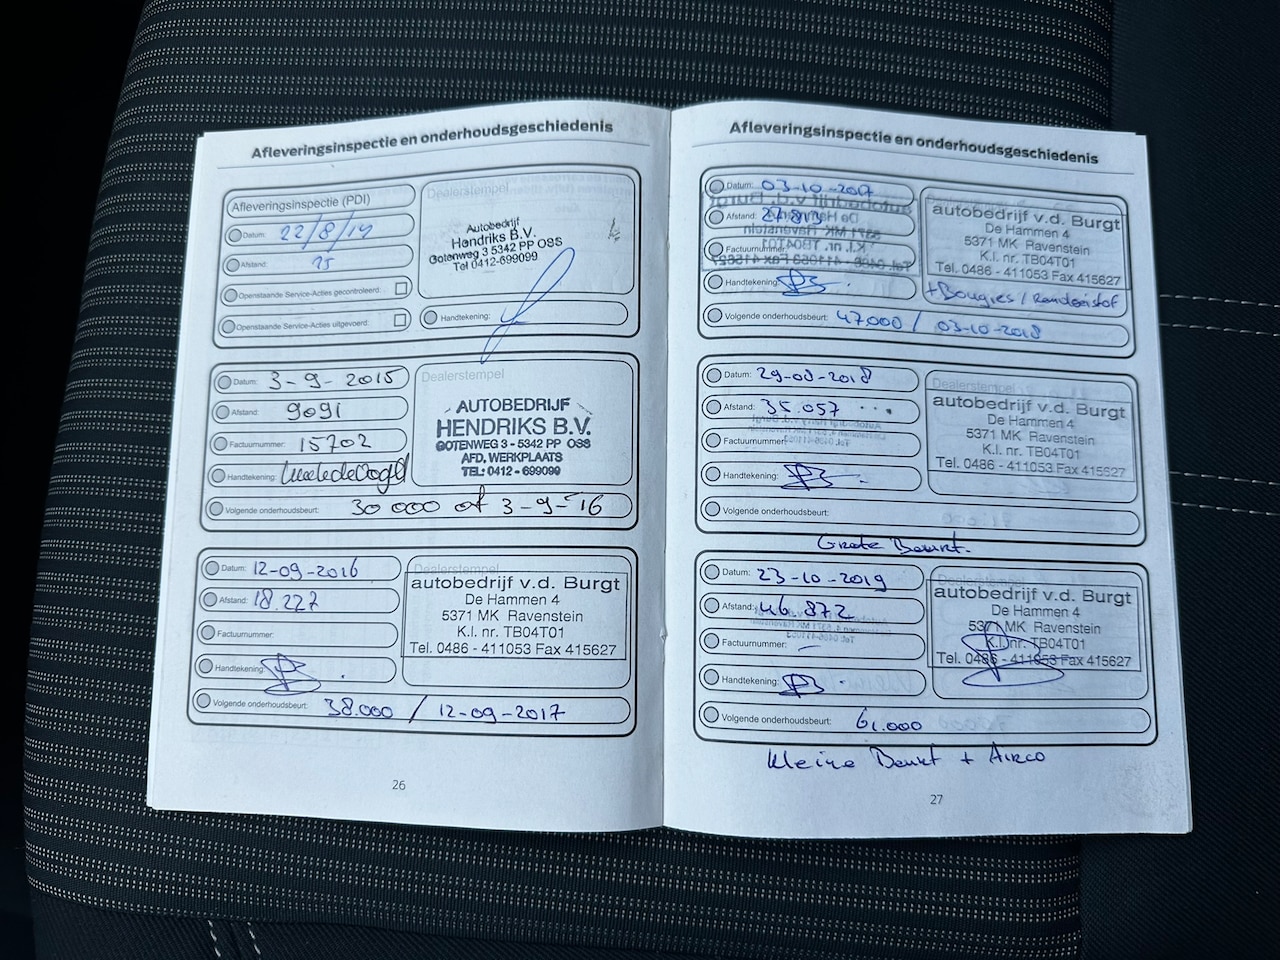 Afleveringsinspectie en onderhoudsgeschiedenis
Afleveringsinspectie (PDI)
Datum: 22/8/14
Afstand: 15
Openstaande Service-Acties gecontroleerd:
Openstaande Service-Acties uitgevoerd:
Dealerstempel
Autobedrijf
Hendriks B.V.
Gotenweg 3 5342 PP OSS
Tel 0412-699099
Handtekening:
Datum: 3-9-2015
Afstand: 9091
Factuurnummer: 15702
Handtekening:
Dealerstempel
AUTOBEDRIJF
HENDRIKS B.V.
GOTENWEG 3 - 5342 PP OSS
AFD. WERKPLAATS
TEL: 0412 - 699099
Volgende onderhoudsbeurt: 30 000 of 3-9-'16
Datum: 12-09-2016
Afstand: 18.227
Factuurnummer:
Handtekening:
Dealerstempel
autobedrijf v.d. Burgt
De Hammen 4
5371 MK Ravenstein
K.I. nr. TB04T01
Tel. 0486 - 411053 Fax 415627
Volgende onderhoudsbeurt: 38.000 / 12-09-2017
26
Afleveringsinspectie en onderhoudsgeschiedenis
Datum: 03-10-2017
Afstand:
Factuurnummer:
Handtekening:
autobedrijf v.d. Burgt
De Hammen 4
5371 MK Ravenstein
K.I. nr. TB04T01
Tel. 0486 - 411053 Fax 415627
+ Bougies / Remvloeistof
Volgende onderhoudsbeurt: 47000 / 03-10-2018
Datum: 29-08-2018
Afstand: 35.057
Factuurnummer:
Handtekening:
Dealerstempel
autobedrijf v.d. Burgt
De Hammen 4
5371 MK Ravenstein
K.I. nr. TB04T01
Tel. 0486 - 411053 Fax 415627
Volgende onderhoudsbeurt:
Grote Beurt.
Datum: 23-10-2019
Afstand: 46.872
Factuurnummer: -
Handtekening:
Dealerstempel
autobedrijf v.d. Burgt
De Hammen 4
5371 MK Ravenstein
K.I. nr. TB04T01
Tel. 0486 - 411053 Fax 415627
Volgende onderhoudsbeurt: 61.000
Kleine Beurt + Airco
27